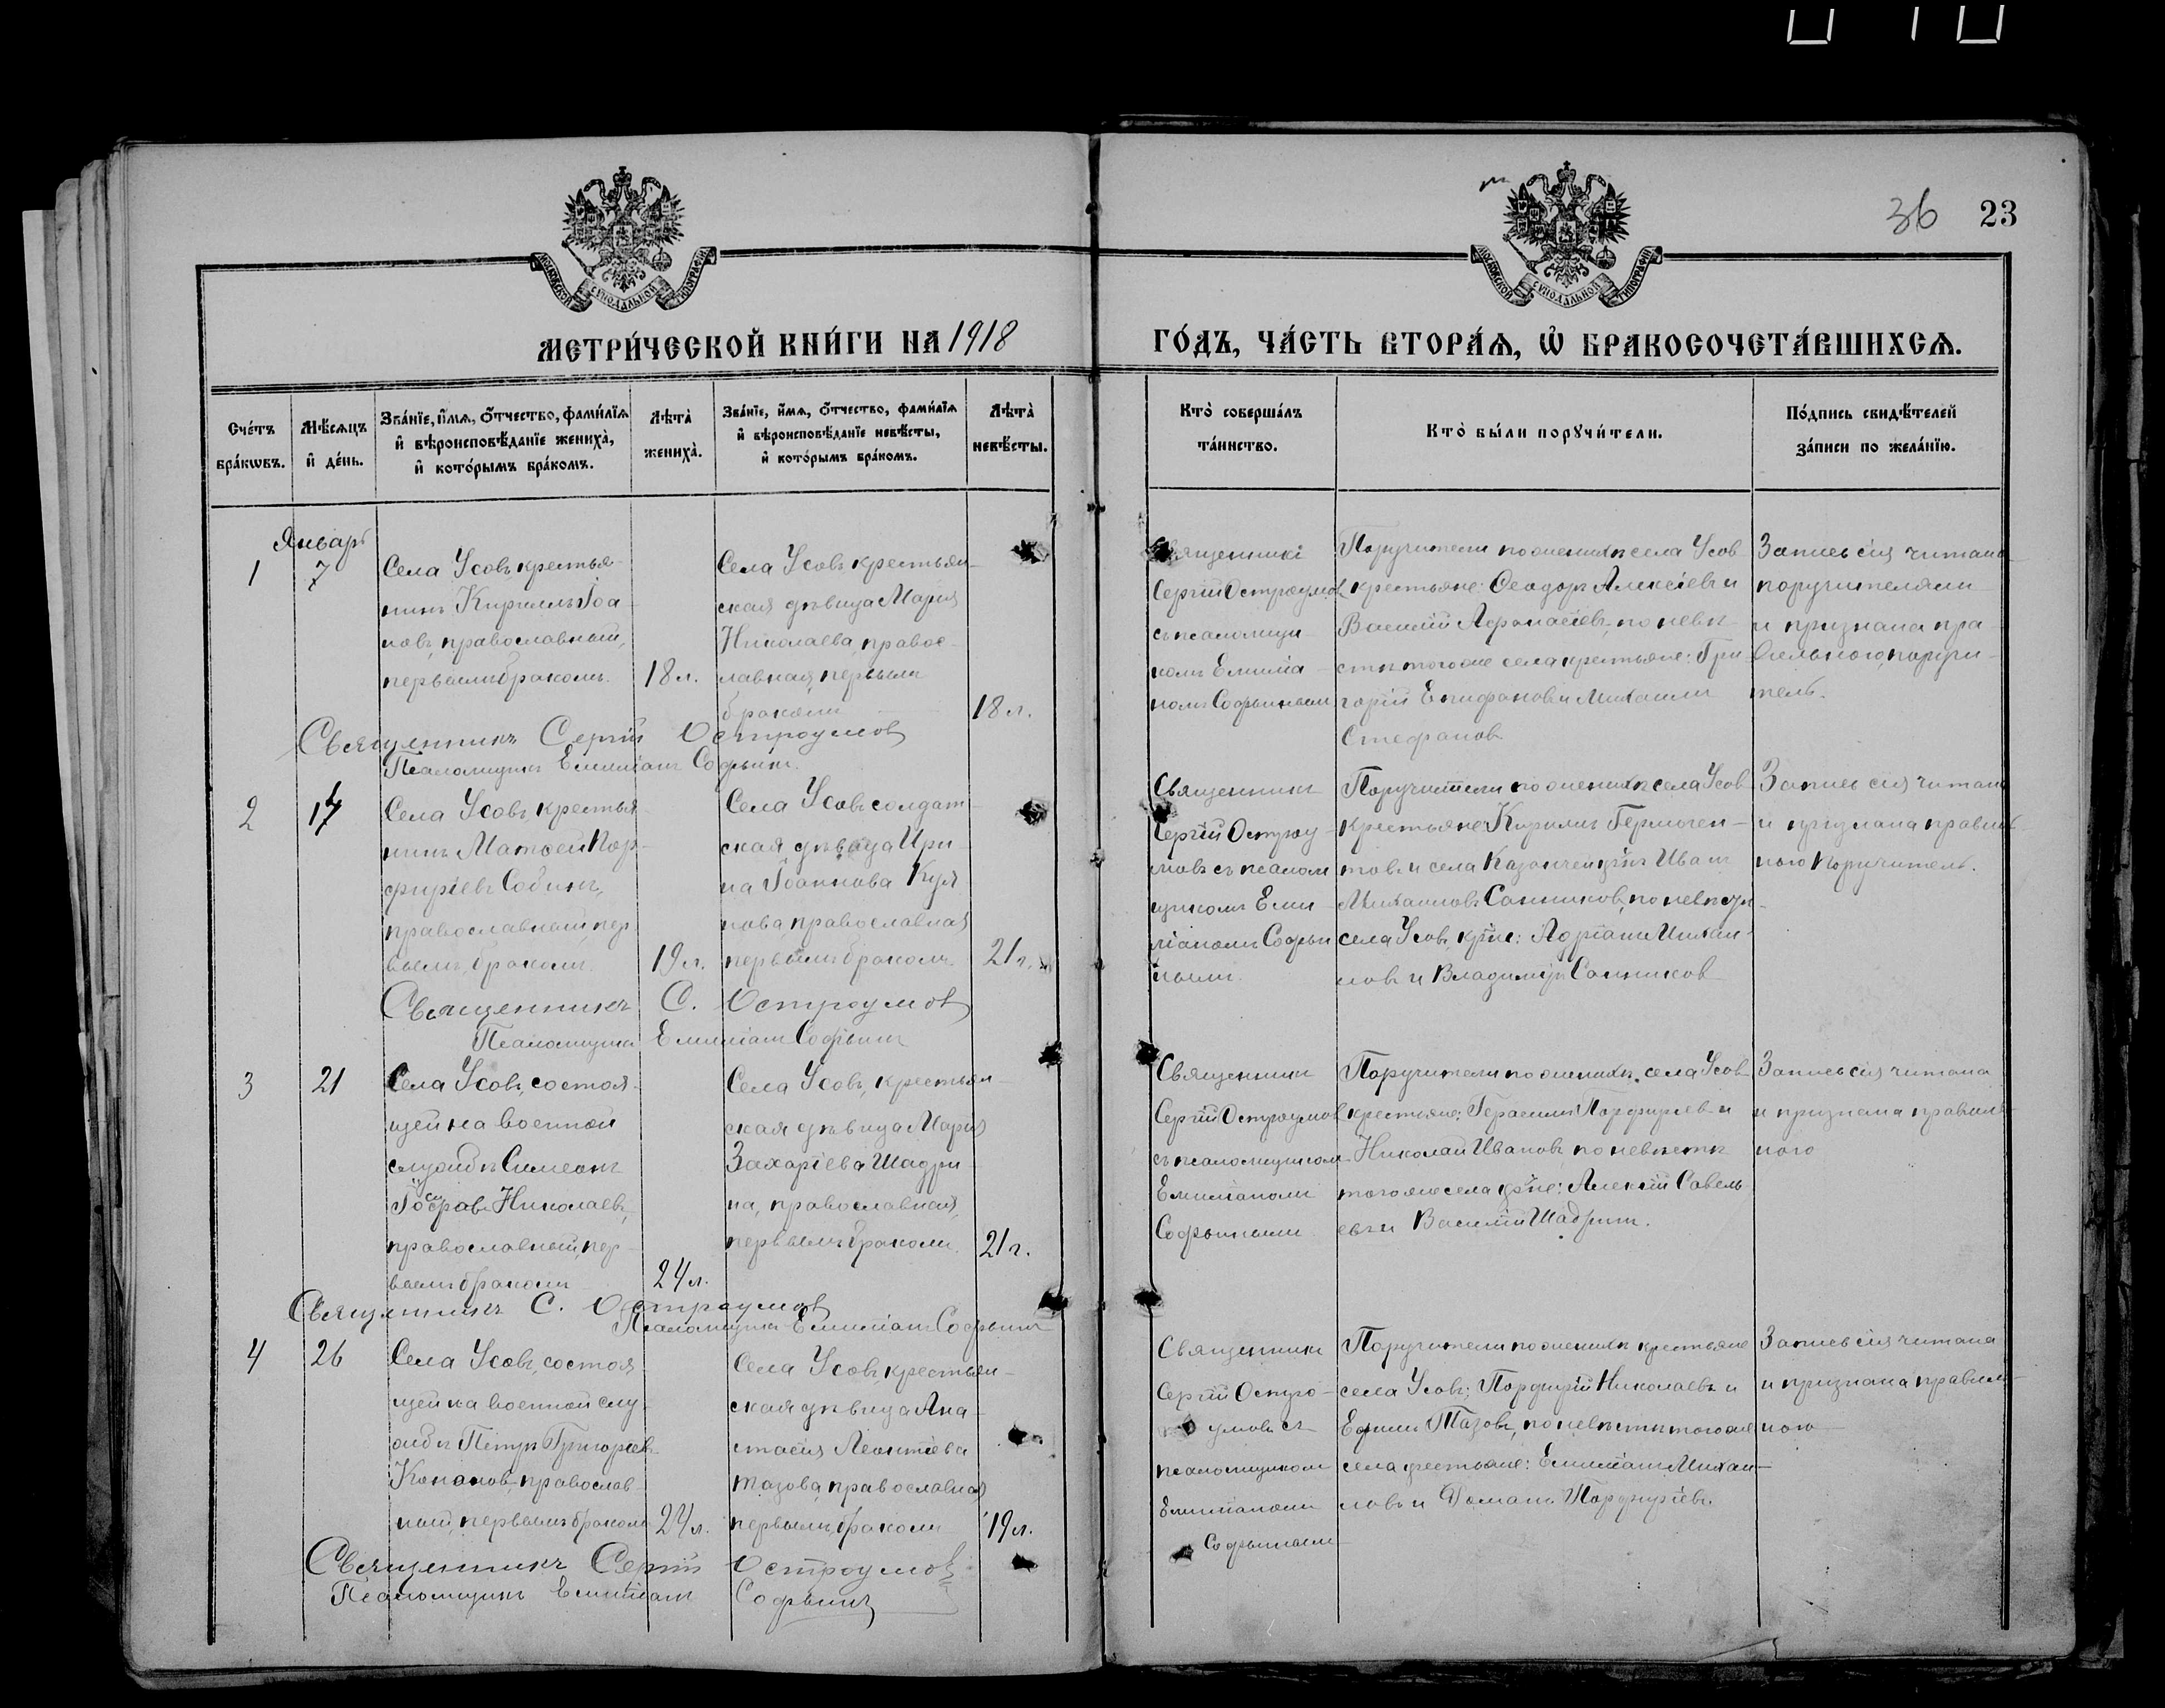 36 23
МОСКОВСКОЙ СѴНОДАЛЬНОЙ ТИПОГРАФІИ
МОСКОВСКОЙ СѴНОДАЛЬНОЙ ТИПОГРАФІИ
МЕТРИ́ЧЕСКОЙ КНИ́ГИ НА 1918
ГО́ДЪ, ЧА́СТЬ ВТОРА́Ѧ, Ѡ҆ БРАКОСОЧЕТА́ВШИХСѦ.
Сче́тъ
бра́кѡвъ.
Мѣ́сѧцъ
и҆ де́нь.
Зва́нїе, и҆́мѧ, Ѻ҆́тчество, фами́лїѧ
и҆ вѣроисповѣ́данїе жениха̀,
и҆ кото́рымъ бра́комъ.
Лѣта̀
жениха̀.
Зва́нїе, и҆́мѧ, Ѻ҆́тчество, фами́лїѧ
и҆ вѣроисповѣ́данїе невѣ́сты,
и҆ кото́рымъ бра́комъ.
Лѣта̀
невѣ́сты.
Кто̀ соверша́лъ
та́инство.
Кто̀ бы́ли порꙋчи́тели.
По́дпись свидѣ́телей
за́писи по жела́нїю.
Январь
1
7
Села Усовъ, крестья-
нинъ Кириллъ Іоа-
новъ, православный,
первымъ бракомъ.
18 л.
Села Усовъ крестьян-
ская дѣвица Марія
Николаева, правос-
лавная, первымъ
бракомъ
18 л.
Священникъ
Сергій Остроумовъ
съ псаломщи-
комъ Емиліа-
номъ Софьинымъ
Поручители по женихѣ села Усовъ
крестьяне: Ѳеодоръ Алексіевъ и
Василій Аѳанасіевъ, по невѣ-
стѣ того же села крестьяне: Гри-
горій Епифановъ и Михаилъ
Стефановъ
Запись сія читана
поручителями
и признана пра-
вильною, поручи-
тель.
Священникъ Сергій Остроумовъ
Псаломщикъ Емиліанъ Софьинъ.
2
17
Села Усовъ, крестья-
нинъ Матѳей Пор-
фиріевъ Собинъ,
православный, пер-
вымъ бракомъ.
19 л.
Села Усовъ солдат-
ская дѣвица Ири-
на Іоаннова Куя
нова, православная
первымъ бракомъ.
21 г.
Священникъ
Сергій Остроу-
мовъ съ псалом
щикомъ Еми-
ліаномъ Софьи
нымъ.
Поручители по женихѣ села Усовъ
крестьяне: Кириллъ Гермоген-
товъ и села Иванъ
Михаиловъ Санниковъ, по невѣстѣ
села Усовъ, кр-не: Адріанъ Михаи-
ловъ и Владиміръ Санниковъ
Запись сія читана
и признана правиль-
ною Поручитель.
Священникъ С. Остроумовъ
Псаломщикъ Емиліанъ Софьинъ
3
21
Села Усовъ, состоя-
щей на военной
службѣ Симеонъ
Іосифовъ Николаевъ,
православный, пер-
вымъ бракомъ
24 л.
Села Усовъ, крестьян-
ская дѣвица Марія
Захаріева Шадри-
на, православная,
первымъ бракомъ.
21 г.
Священникъ
Сергій Остроумовъ
съ псаломщикомъ
Емиліаномъ
Софьинымъ
Поручители по женихѣ села Усовъ
крестьяне: Герасимъ Порфирьевъ и
Николай Ивановъ, по невѣстѣ
того же села кр-не: Алексій Савель-
евъ и Василій Шадринъ.
Запись сія читана
и признана правиль-
ною
Священникъ С. Остроумовъ
Псаломщикъ Емиліанъ Софьинъ
4
26
Села Усовъ, состоя-
щей на военной слу-
жбѣ Петръ Григорьевъ
Кононовъ, православ-
ный, первымъ бракомъ
24 л.
Села Усовъ, крестьян-
ская дѣвица Ана-
стасія Леонтіева
Тазова, православная
первымъ бракомъ
19 л.
Священникъ
Сергій Остро-
умовъ съ
псаломщикомъ
Емиліаномъ
Софьинымъ
Поручители по женихѣ крестьяне
села Усовъ: Порфирій Николаевъ и
Ефимъ Тазовъ, по невѣстѣ того же
села крестьяне: Емиліанъ Михаи-
ловъ и Романъ Порфиріевъ.
Запись сія читана
и признана правиль-
ною
Священникъ Сергій Остроумовъ
Псаломщикъ Емиліанъ Софьинъ